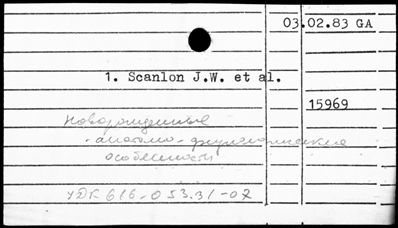 03.02.83 GA
1. Scanlon J.W. et al.
15969
Новорожденные
-анатомо-физиологические
особенности
УДК 616-053.31-07